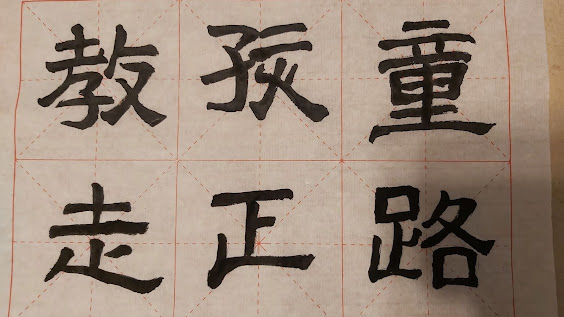 教孩童
走正路